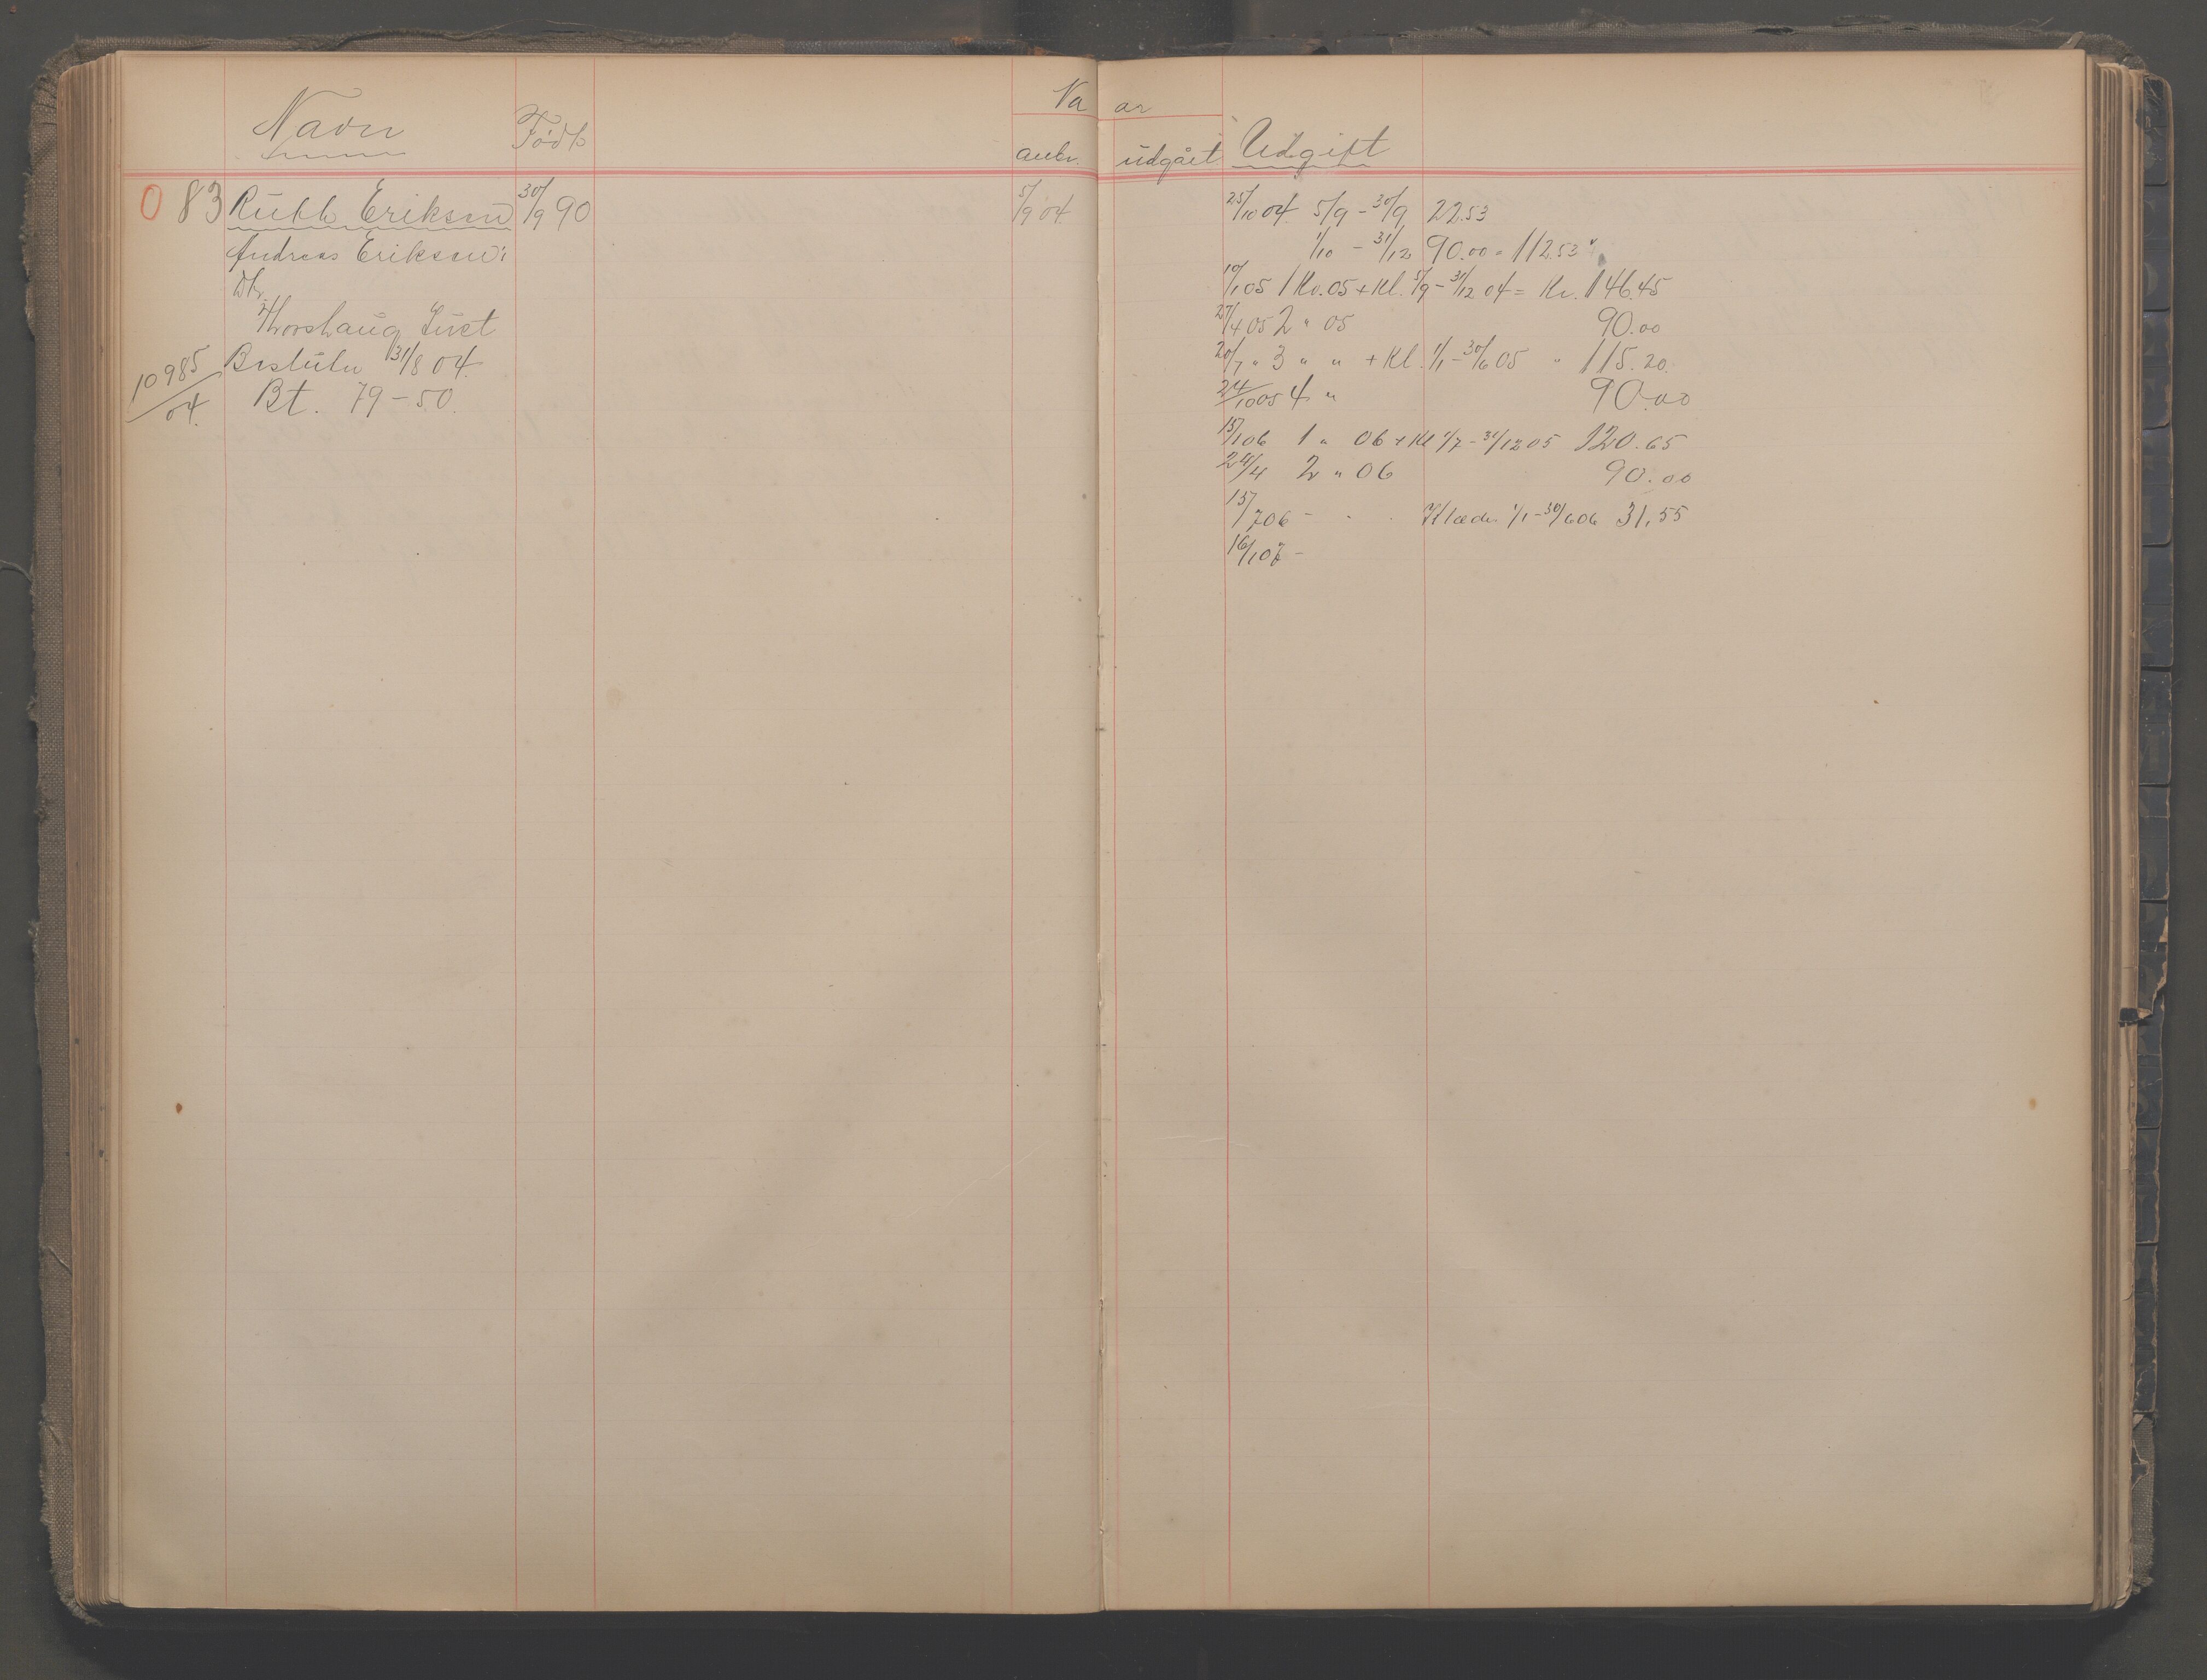 Navn Født Na ar
anbr. udgået Udgift
0 83 Ruth Eriksen 30/9 90 5/9 04 25/10 04 5/9 - 30/9 22.53
Andreas Eriksens 1/10 - 31/12 90.00 = 112.53
Dtr. 10/1 05 1 Kv. 05 + Kl. 5/9 - 31/12 04 = Kr. 146.45
Thorshaug Inst 27/4 05 2 " 05 90.00
10985/04 Beslutn 31/8 04. 20/7 " 3 " " + Kl. 1/1 - 30/6 05 " 115.20.
Bt. 79-50. 24/10 05 4 " 90.00
15/1 06 1 " 06 + Kl 1/7 - 31/12 05 120.65
24/4 2 " 06 90.00
15/7 06 - Klæder 1/1 - 30/6 06 31,55
16/1 07 -